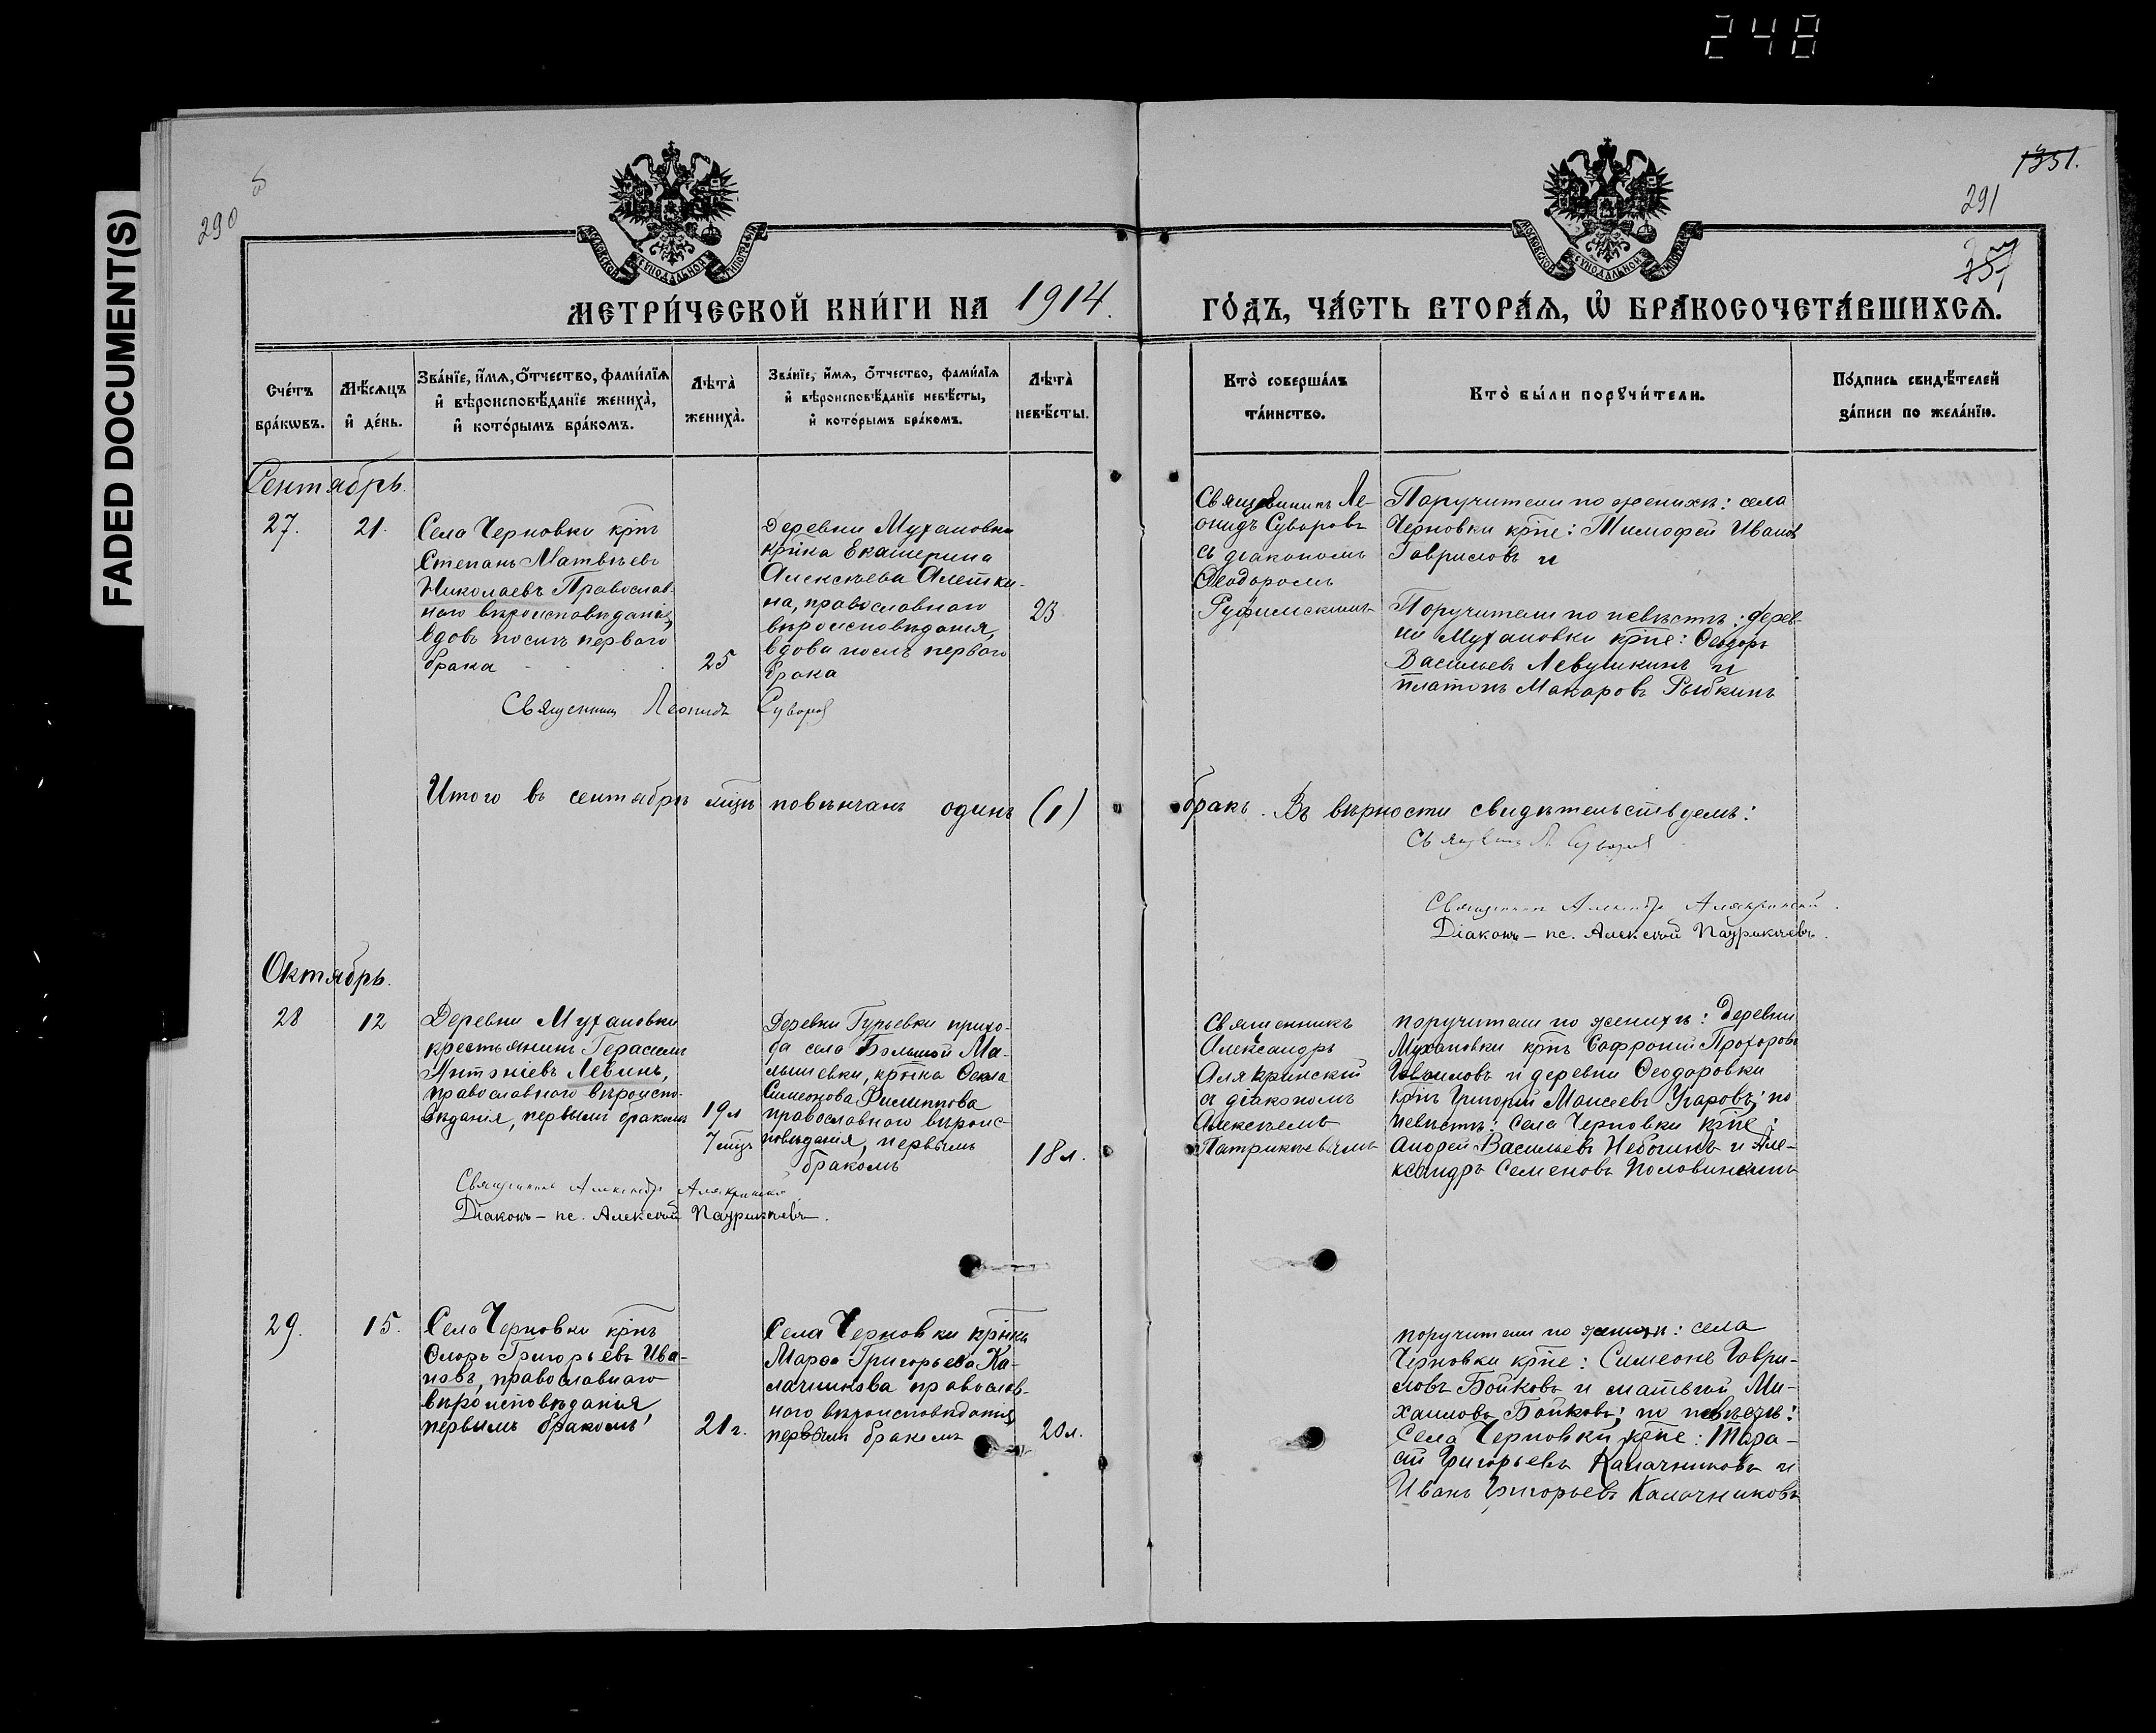 248
FADED DOCUMENT(S)
290
1351.
291
МОСКОВСКОЙ СѴНОДАЛЬНОЙ ТИПОГРАФІИ
МОСКОВСКОЙ СѴНОДАЛЬНОЙ ТИПОГРАФІИ
МЕТРИ́ЧЕСКОЙ КНИ́ГИ НА 1914.
ГО́ДЪ, ЧА́СТЬ ВТОРА́Ѧ, Ѡ҆ БРАКОСОЧЕТА́ВШИХСѦ.
Сче́тъ
бра́кѡвъ.
Мѣ́сѧцъ
и҆ де́нь.
Зва́нїе, и҆́мѧ, ѻ҆́тчество, фами́лїѧ
и҆ вѣроисповѣ́данїе жениха̀,
и҆ кото́рымъ бра́комъ.
Лѣта̀
жениха̀.
Зва́нїе, и҆́мѧ, ѻ҆́тчество, фами́лїѧ
и҆ вѣроисповѣ́данїе невѣ́сты,
и҆ кото́рымъ бра́комъ.
Лѣта̀
невѣ́сты.
Кто̀ соверша́лъ
та́инство.
Кто̀ бы́ли порꙋчи́тели.
По́дпись свидѣ́телей
за́писи по жела́нїю.
Сентябрь.
27.
21.
Села Черновки крнъ
Степанъ Матвѣевъ
Николаевъ Православ-
наго вѣроисповѣданія,
вдовъ послѣ перваго
брака
25
Деревни Мухановки
крнка Екатерина
Алексѣева Алетки-
на, православнаго
вѣроисповѣданія,
вдова послѣ перваго
брака
23
Священникъ Ле-
онидъ Суворовъ
съ діакономъ
Ѳеодоромъ
Руфимскимъ
Поручители по женихѣ: села
Черновки крне: Тимофей Ивановъ
Гавриловъ и
Поручители по невѣстѣ: дерев-
ни Мухановки крне: Ѳеодоръ
Васильевъ Левушкинъ и
Платонъ Макаровъ Рыбкинъ
Священникъ Леонидъ Суворовъ
Итого въ сентябрѣ мцѣ повѣнчанъ одинъ (1)
бракъ. Въ вѣрности свидѣтельствуемъ:
Священникъ Л. Суворовъ
Священникъ Александръ Алякринскій.
Діаконъ – пс. Алексѣй Патрикѣевъ.
Октябрь.
28
12
Деревни Мухановки
крестьянинъ Герасимъ
Антоніевъ Левинъ,
православнаго вѣроиспо-
вѣданія, первымъ бракомъ
19 л
7 мцъ
Деревни Гурьевки прихо-
да села Большой Ма-
лышевки, крнка Ѳекла
Симеонова Филиппова
православнаго вѣроис-
повѣданія, первымъ
бракомъ
18 л.
Священникъ
Александръ
Алякринскій
съ діакономъ
Алексѣемъ
Патрикѣевымъ
поручители по женихѣ: Деревни
Мухановки крнъ Софроній Прохоровъ
и деревни Ѳеодоровки
крнъ Григорій Моисеевъ Угаровъ; по
невѣстѣ: села Черновки крне:
Андрей Васильевъ и Але-
ксандръ Семеновъ Половинкинъ
Священникъ Александръ Алякринскій
Діаконъ – пс. Алексѣй Патрикѣевъ.
29.
15.
Села Черновки крнъ
Флоръ Григорьевъ Ива-
новъ, православнаго
вѣроисповѣданія
первымъ бракомъ
21 г.
Села Черновки крнка
Марѳа Григорьева Ка-
лачникова православ-
наго вѣроисповѣданія
первымъ бракомъ
20 л.
поручители по женихѣ: села
Черновки крне: Симеонъ Гаври-
ловъ Бойковъ и Матвѣй Ми-
хаиловъ Бойковъ; по невѣстѣ:
Села Черновки крне: Тара-
сій Григорьевъ Калачниковъ и
Иванъ Григорьевъ Калачниковъ